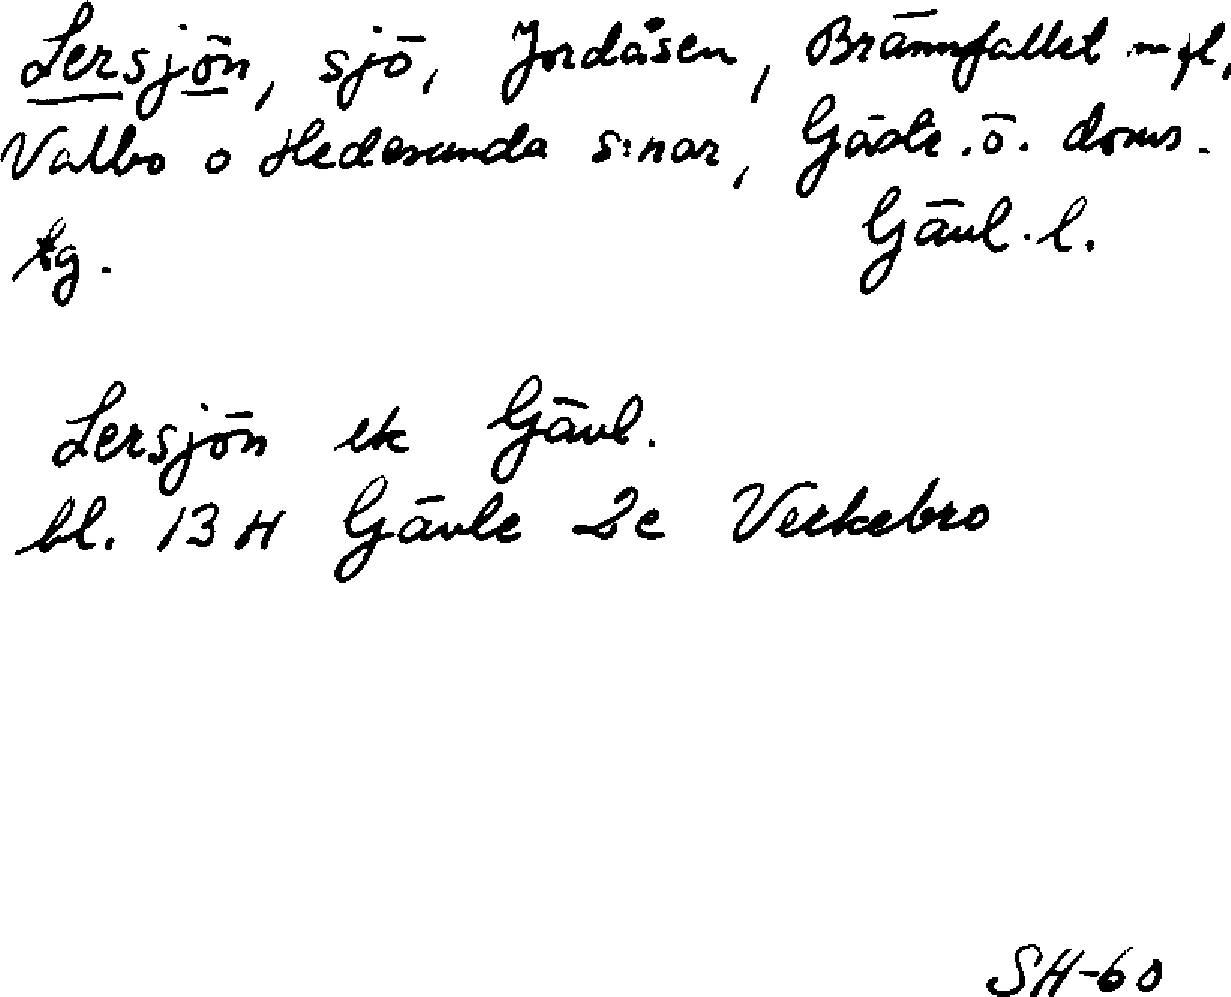 Lersjön, sjö, Jordåsen, Brännfallet m fl,
Valbo o Hedesunda s:nar, Gästr. ö. doms.
tg. Gävl. l.
Lersjön ek Gävl.
bl. 13 H Gävle 2c Verkebro
SH-60